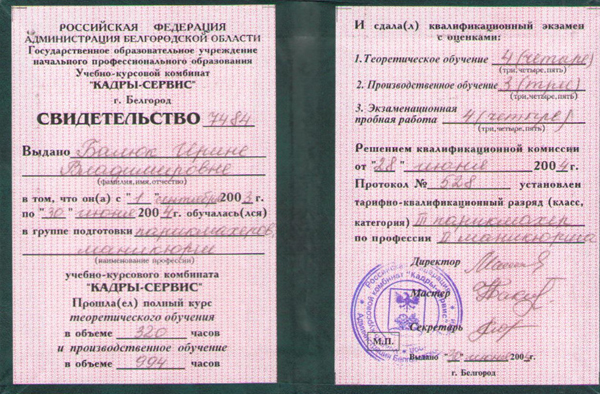 РОССИЙСКАЯ ФЕДЕРАЦИЯ
АДМИНИСТРАЦИЯ БЕЛГОРОДСКОЙ ОБЛАСТИ
Государственное образовательное учреждение
начального профессионального образования
Учебно-курсовой комбинат
"КАДРЫ-СЕРВИС"
г. Белгород
СВИДЕТЕЛЬСТВО 7484
Выдано Балюк Ирине
Владимировне
(фамилия,имя,отчество)
в том, что он(а) с "1" сентября 2003 г.
по "30" июня 2004 г. обучалась(лся)
в группе подготовки парикмахеров,
маникюрш
(наименование профессии)
учебно-курсового комбината
"КАДРЫ-СЕРВИС"
Прошла(ел) полный курс
теоретического обучения
в объеме 320 часов
и производственное обучение
в объеме 994 часов
И сдала(л) квалификационный экзамен
с оценками:
1. Теоретическое обучение 4 (четыре)
(три,четыре,пять)
2. Производственное обучение 3 (три)
(три,четыре,пять)
3. Экзаменационная
пробная работа 4 (четыре)
(три,четыре,пять)
Решением квалификационной комиссии
от "28" июня 2004 г.
Протокол № 528 установлен
тарифно-квалификационный разряд (класс,
категория) III парикмахер
по профессии II маникюрша
Директор
Мастер
Секретарь
М.П.
Выдано июня 2004 г.
г. Белгород